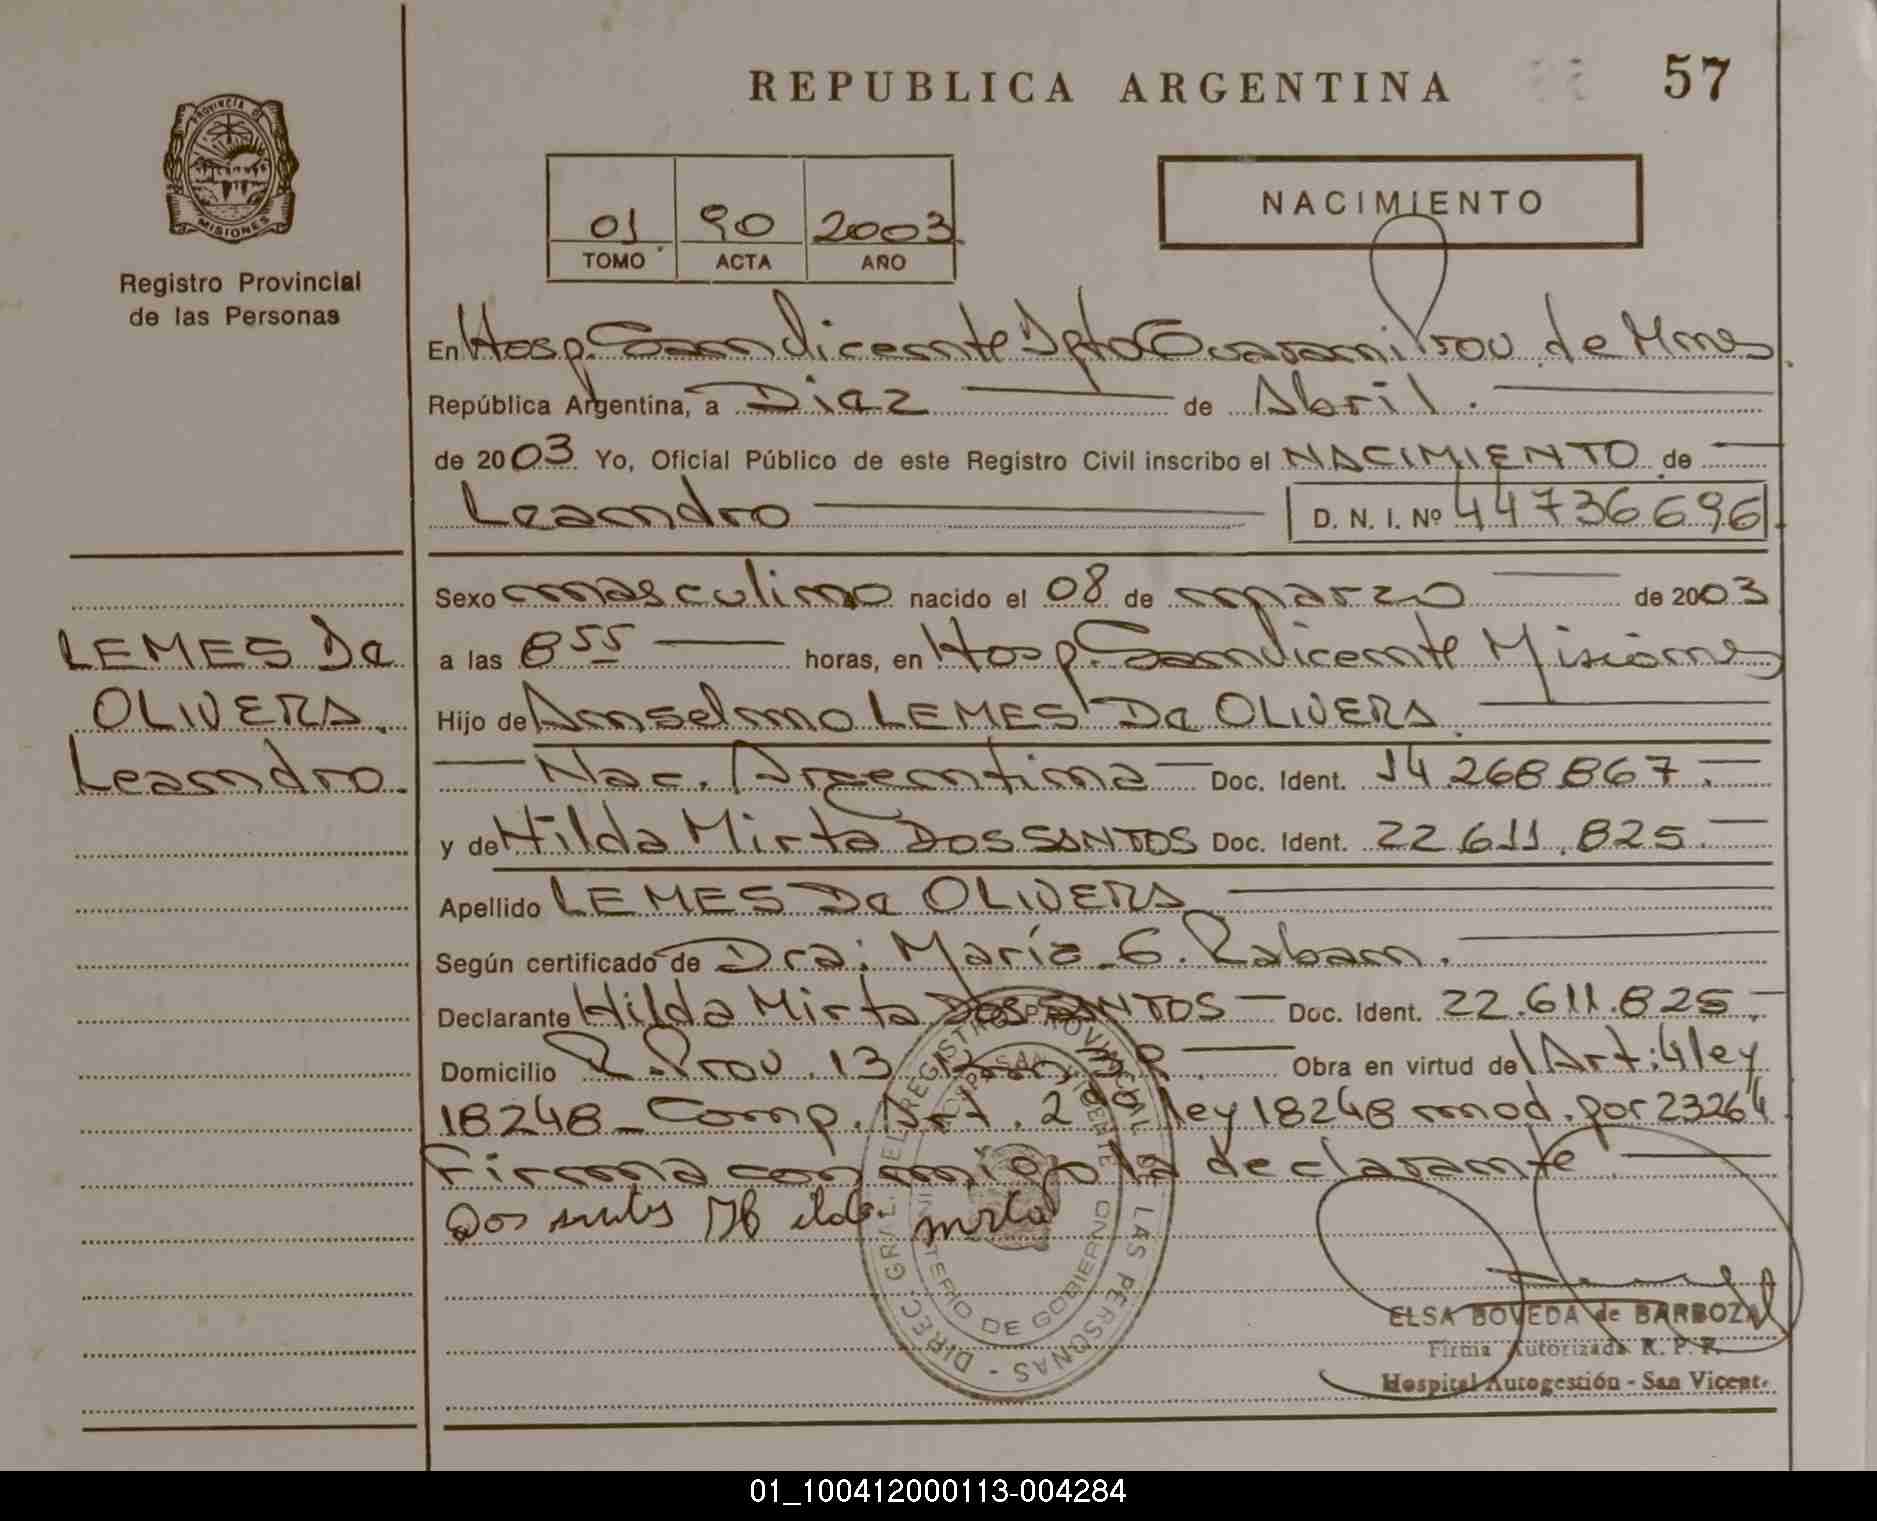 REPUBLICA ARGENTINA
57
PROVINCIA DE
MISIONES
Registro Provincial
de las Personas
01 90 2003
TOMO ACTA AÑO
NACIMIENTO
En Hosp. San Vicente Dpto Guarani Prov. de Mnes
República Argentina, a Diez de Abril.
de 2003 Yo, Oficial Público de este Registro Civil inscribo el NACIMIENTO de
Leandro D. N. I. Nº 44736696
Sexo masculino nacido el 08 de marzo de 2003
a las 8 55 horas, en Hosp. San Vicente Misiones
Hijo de Anselmo LEMES Da OLIVERA
Nac. Argentina Doc. Ident. 14.268.867.
y de Hilda Mirta DOS SANTOS Doc. Ident. 22.611.825.
Apellido LEMES Da OLIVERA
Según certificado de Dra: María G. Raban.
Declarante Hilda Mirta DOS SANTOS Doc. Ident. 22.611.825.
Domicilio R. Prov. 13 Obra en virtud del Art: 4 ley
18248 - Comp. Art. 2do ley 18248 mod. por 23264
Firma conmigo la declarante
Dos santos Hilda mirta
LEMES Da
OLIVERA
Leandro.
DIREC. GRAL. DEL REGISTRO PROVINCIAL DE LAS PERSONAS
MINISTERIO DE GOBIERNO
ELSA BOVEDA de BARBOZA
Firma Autorizada R. P. P.
Hospital Autogestión - San Vicente
01_100412000113-004284